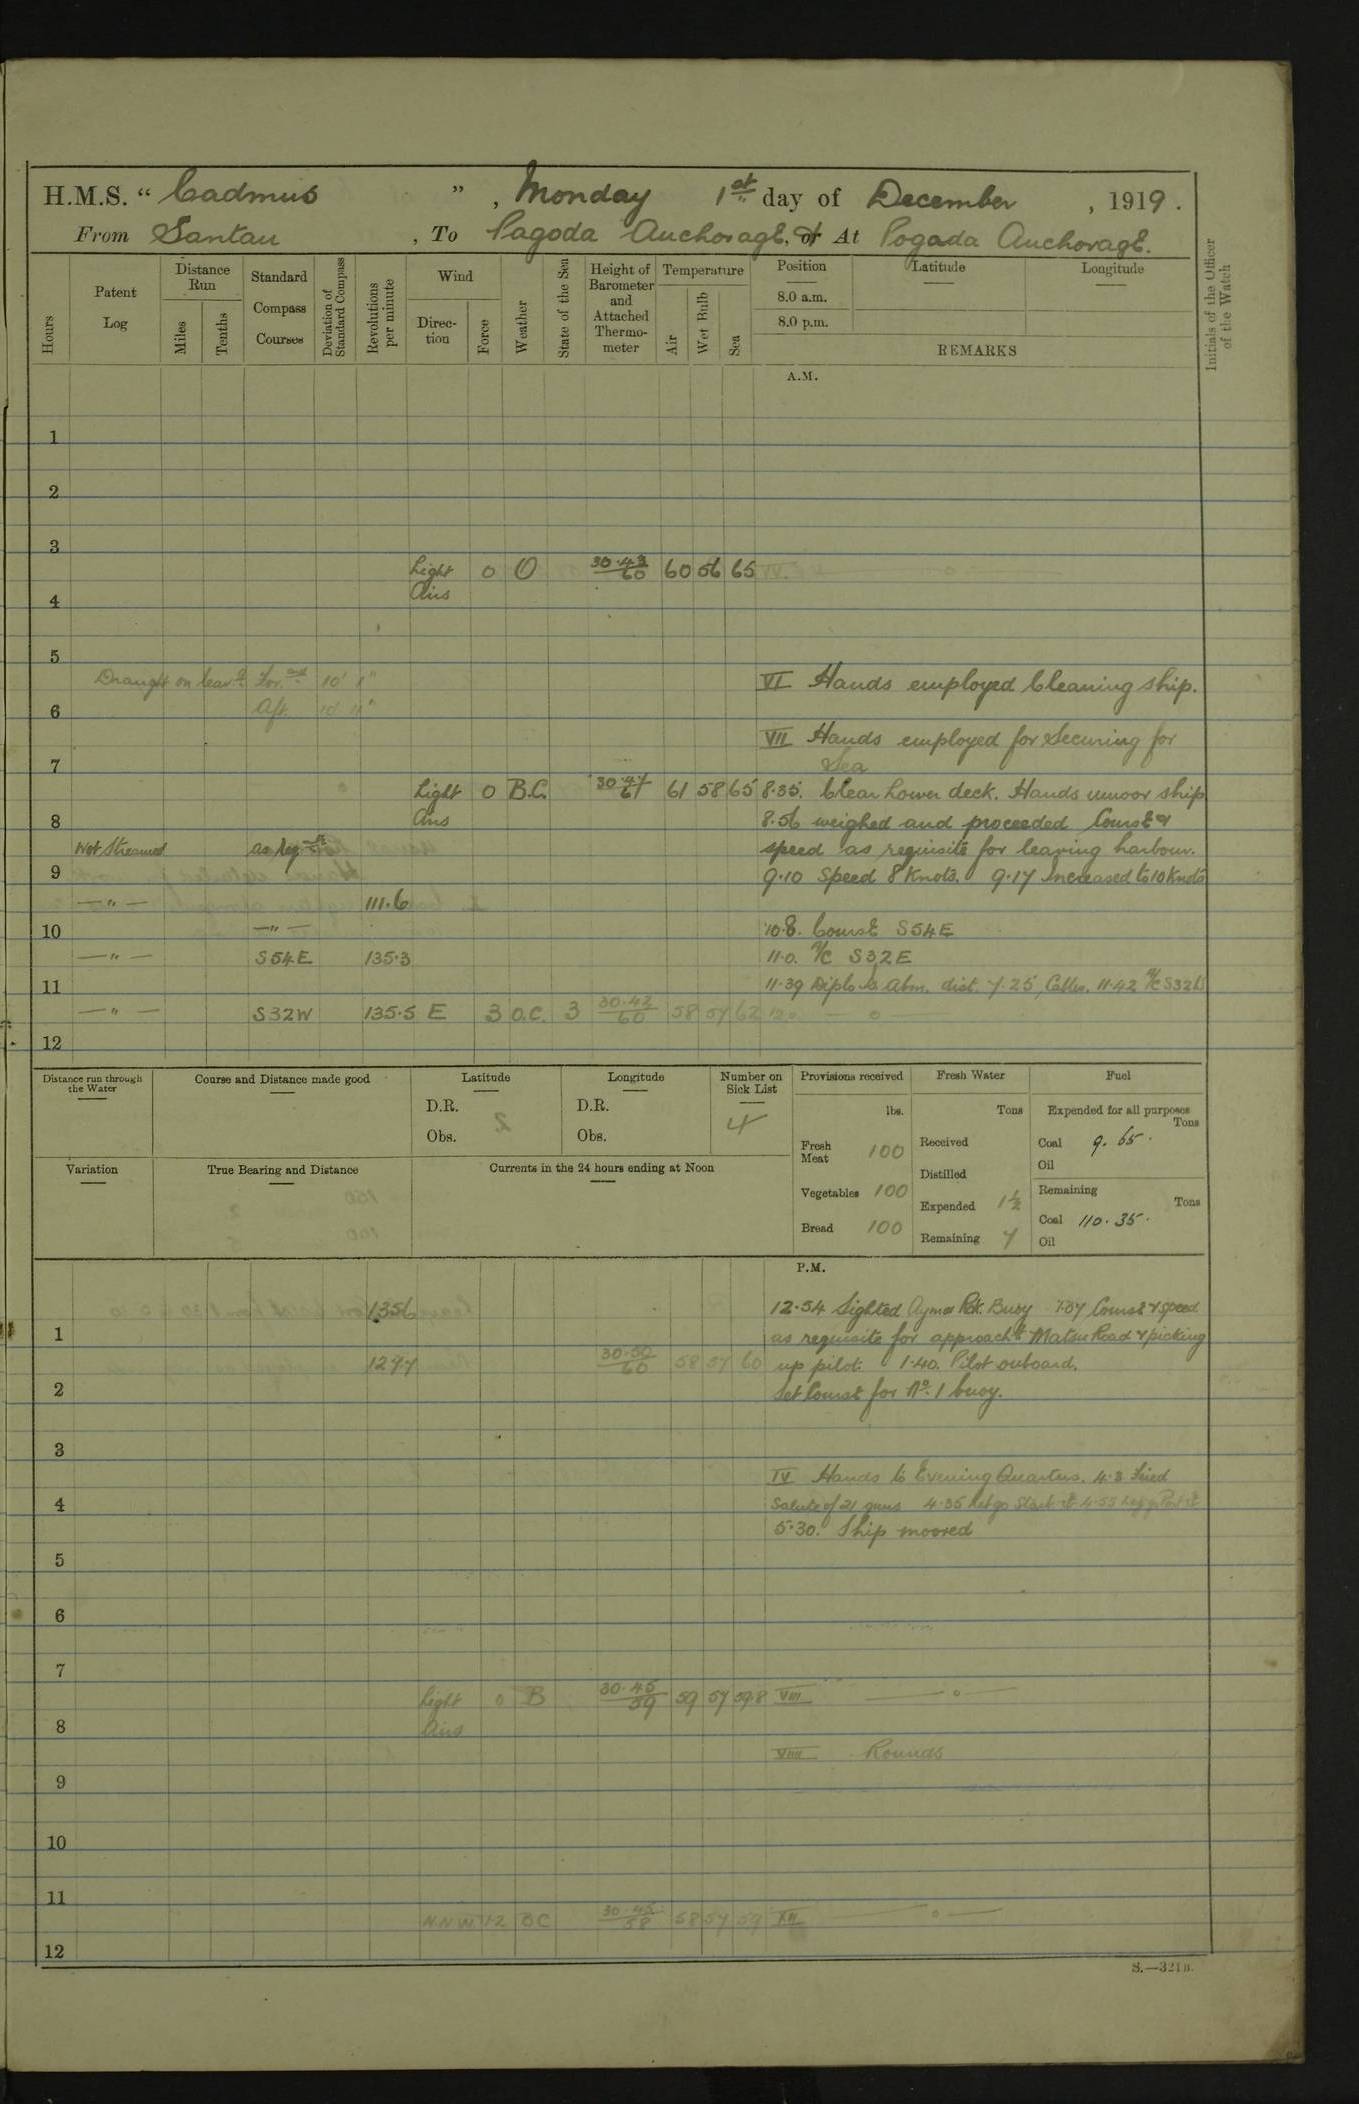 H.M.S. “ Cadmus ” , Monday 1st day of December , 1919 .
From Santau , To Pagoda Anchorage, or At Pogada Anchorage.
Hours
Patent Log
Distance Run
Miles
Tenths
Standard Compass Courses
Deviation of Standard Compass
Revolutions per minute
Wind
Direction
Force
Weather
State of the Sea
Height of Barometer and Attached Thermometer
Temperature
Air
Wet Bulb
Sea
Position
8.0 a.m.
8.0 p.m.
Latitude
Longitude
REMARKS
Initials of the Officer of the Watch
A.M.
1
2
3
Light Airs 0 O 30.43/60 60 56 65
4
5
Draught on leavg. Forard 10' 1" VI Hands employed Cleaning ship.
Aft. 10' 11"
6
VII Hands employed for Securing for
7 Sea
Light Airs 0 B.C. 30.47/61 61 58 65 8.35. Clear Lower deck. Hands unmoor ship
8 8.56 weighed and proceeded Course &
Not Streamed as reqste speed as requisite for leaving harbour.
9 9.10 Speed 8 Knots. 9.17 Increased to 10 Knots
— " — 111.6
10 — " — 10.8. Course S54E
— " — S54E 135.3 11.0. A/C S32E
11 11.39 abm. dist. 7.25, Cables. 11.42 A/C S32W
— " — S32W 135.5 E 3 O.C. 3 30.42/60 58 57 62 12.0. — o —
12
Distance run through the Water
Course and Distance made good
Latitude
D.R.
Obs.
Longitude
D.R.
Obs.
Number on Sick List
4
Provisions received
lbs.
Fresh Meat 100
Vegetables 100
Bread 100
Fresh Water
Tons
Received
Distilled
Expended 1½
Remaining 7
Fuel
Expended for all purposes
Tons
Coal 9.65.
Oil
Remaining
Tons
Coal 110.35.
Oil
Variation
True Bearing and Distance
Currents in the 24 hours ending at Noon
P.M.
135.6 12.54 Sighted Rk. Buoy 1.07 Course & speed
1 as requisite for approachg Matsu Road & picking
127.7 30.50/60 58 57 60 up pilot. 1.40. Pilot onboard.
2 Set Course for No. 1 buoy.
3
IV Hands to Evening Quarters. 4.3 Fired
4 Salute of 21 guns 4.35 Let go Starb. 4.55 Let go Port
5.30. Ship moored
5
6
7
Light Airs 0 B 30.45/59 59 57 59.8 VIII — o —
8
VIIII Rounds
9
10
11
NNW 1-2 BC 30.45/58 58 57 59 XII — o —
12
S.—321B.